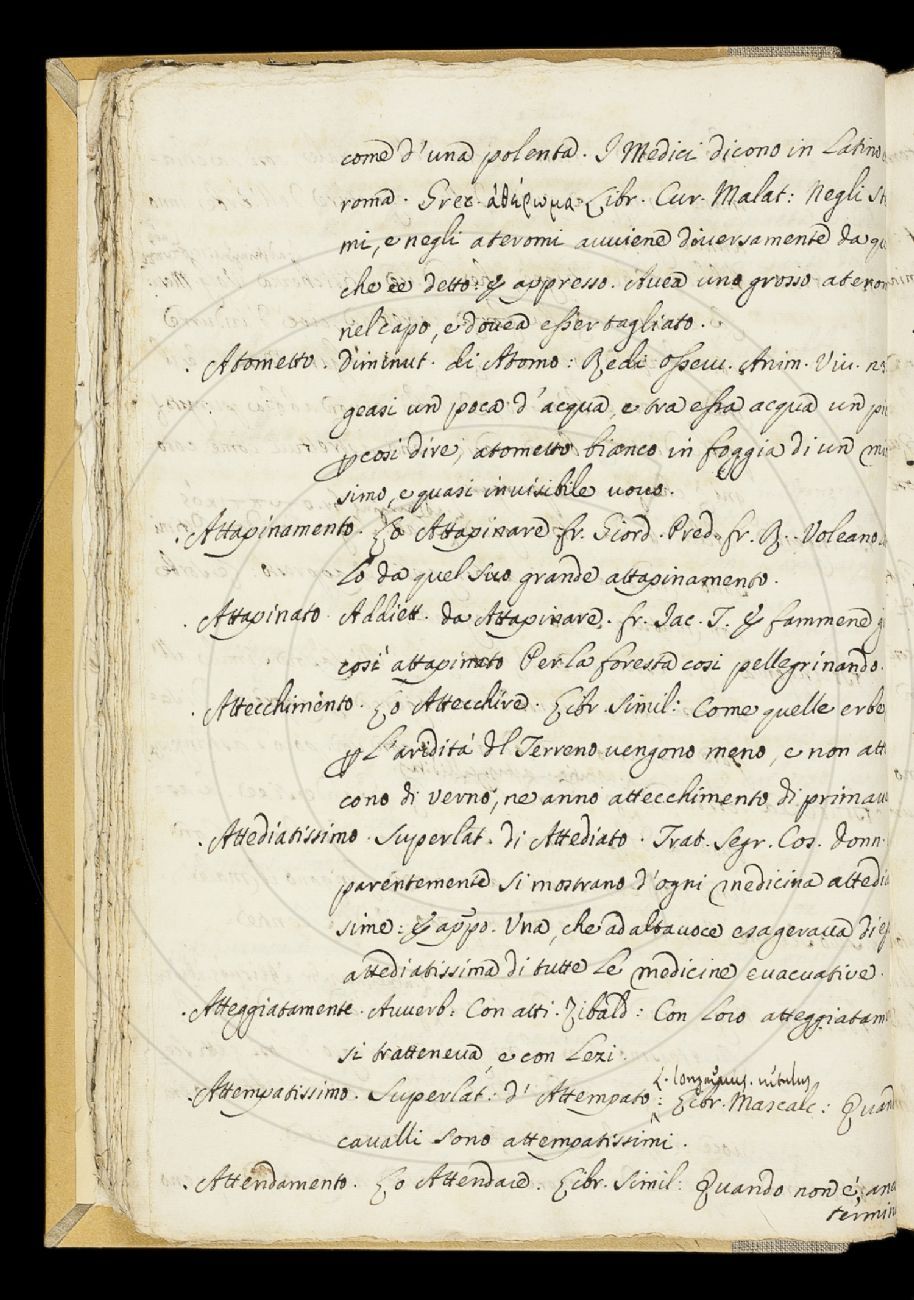 come d'una polenta. I Medici dicono in Latino
roma. Grec. ἀθέρωμα. Libr. Cur. Malat: Negli
mi, e negli ateromi avviene diversamente da
che è detto: & appresso. Avea uno grosso
nel capo, e dovea esser tagliato.
. Atometto. diminut. di Atomo: Redi Osserv. Anim. Viv.
geasi un poca d'acqua, e tra essa acqua un
p cosi dire, atometto bianco in foggia di un
simo, e quasi invisibile uovo.
. Attapinamento. Lo Attapinare fr. Giord. Pred. fr. R.
Lo da quel suo grande attapinamento.
. Attapinato. Addiett. da Attapinare. fr. Jac. T. & fammene
cosi attapinato Per la foresta cosi pellegrinando.
. Attecchimento. Lo Attecchire. Libr. Simil: Come quelle erbe
p L'aridità dl Terreno vengono meno, e non
cono di verno, ne anno attecchimento di
. Attediatissimo. Superlat. di Attediato. Trat. Segr. Cos. donn.
parentemente si mostrano d'ogni medicina
sime: & appo. Una, che ad alta voce esagerava di
attediatissima di tutte le medicine evacuative.
. Atteggiatamente. Avverb: Con atti. Zibald: Con loro
si tratteneva, e con Lezi.
L. longaevus. vetulus
. Attempatissimo. Superlat: d' Attempato: Libr. Mascalc:
cavalli sono attempatissimi.
. Attendamento. Lo Attendare. Libr. Simil: Quando non è